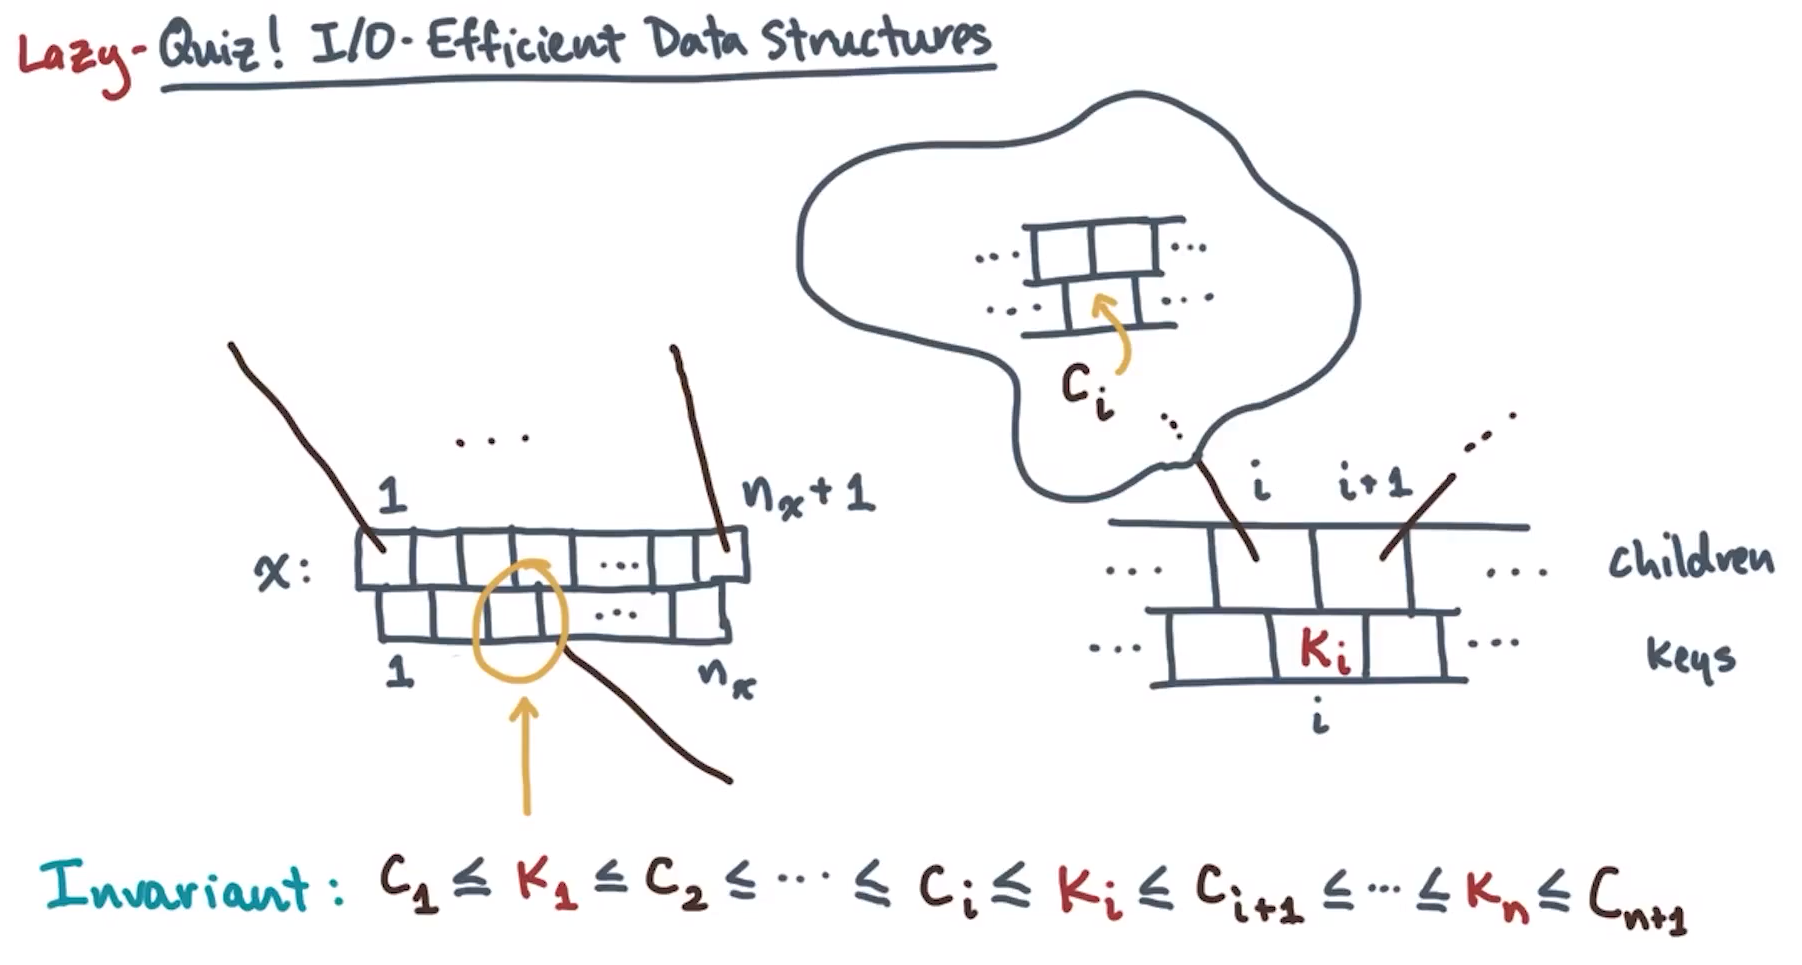 Lazy-Quiz! I/O-Efficient Data Structures
... ...
... ...
C_i
...
1 n_x+1 i i+1
x: ... ... ... children
... ... K_i ... keys
1 n_x i
Invariant: C_1 ≤ K_1 ≤ C_2 ≤ ... ≤ C_i ≤ K_i ≤ C_{i+1} ≤ ... ≤ K_n ≤ C_{n+1}